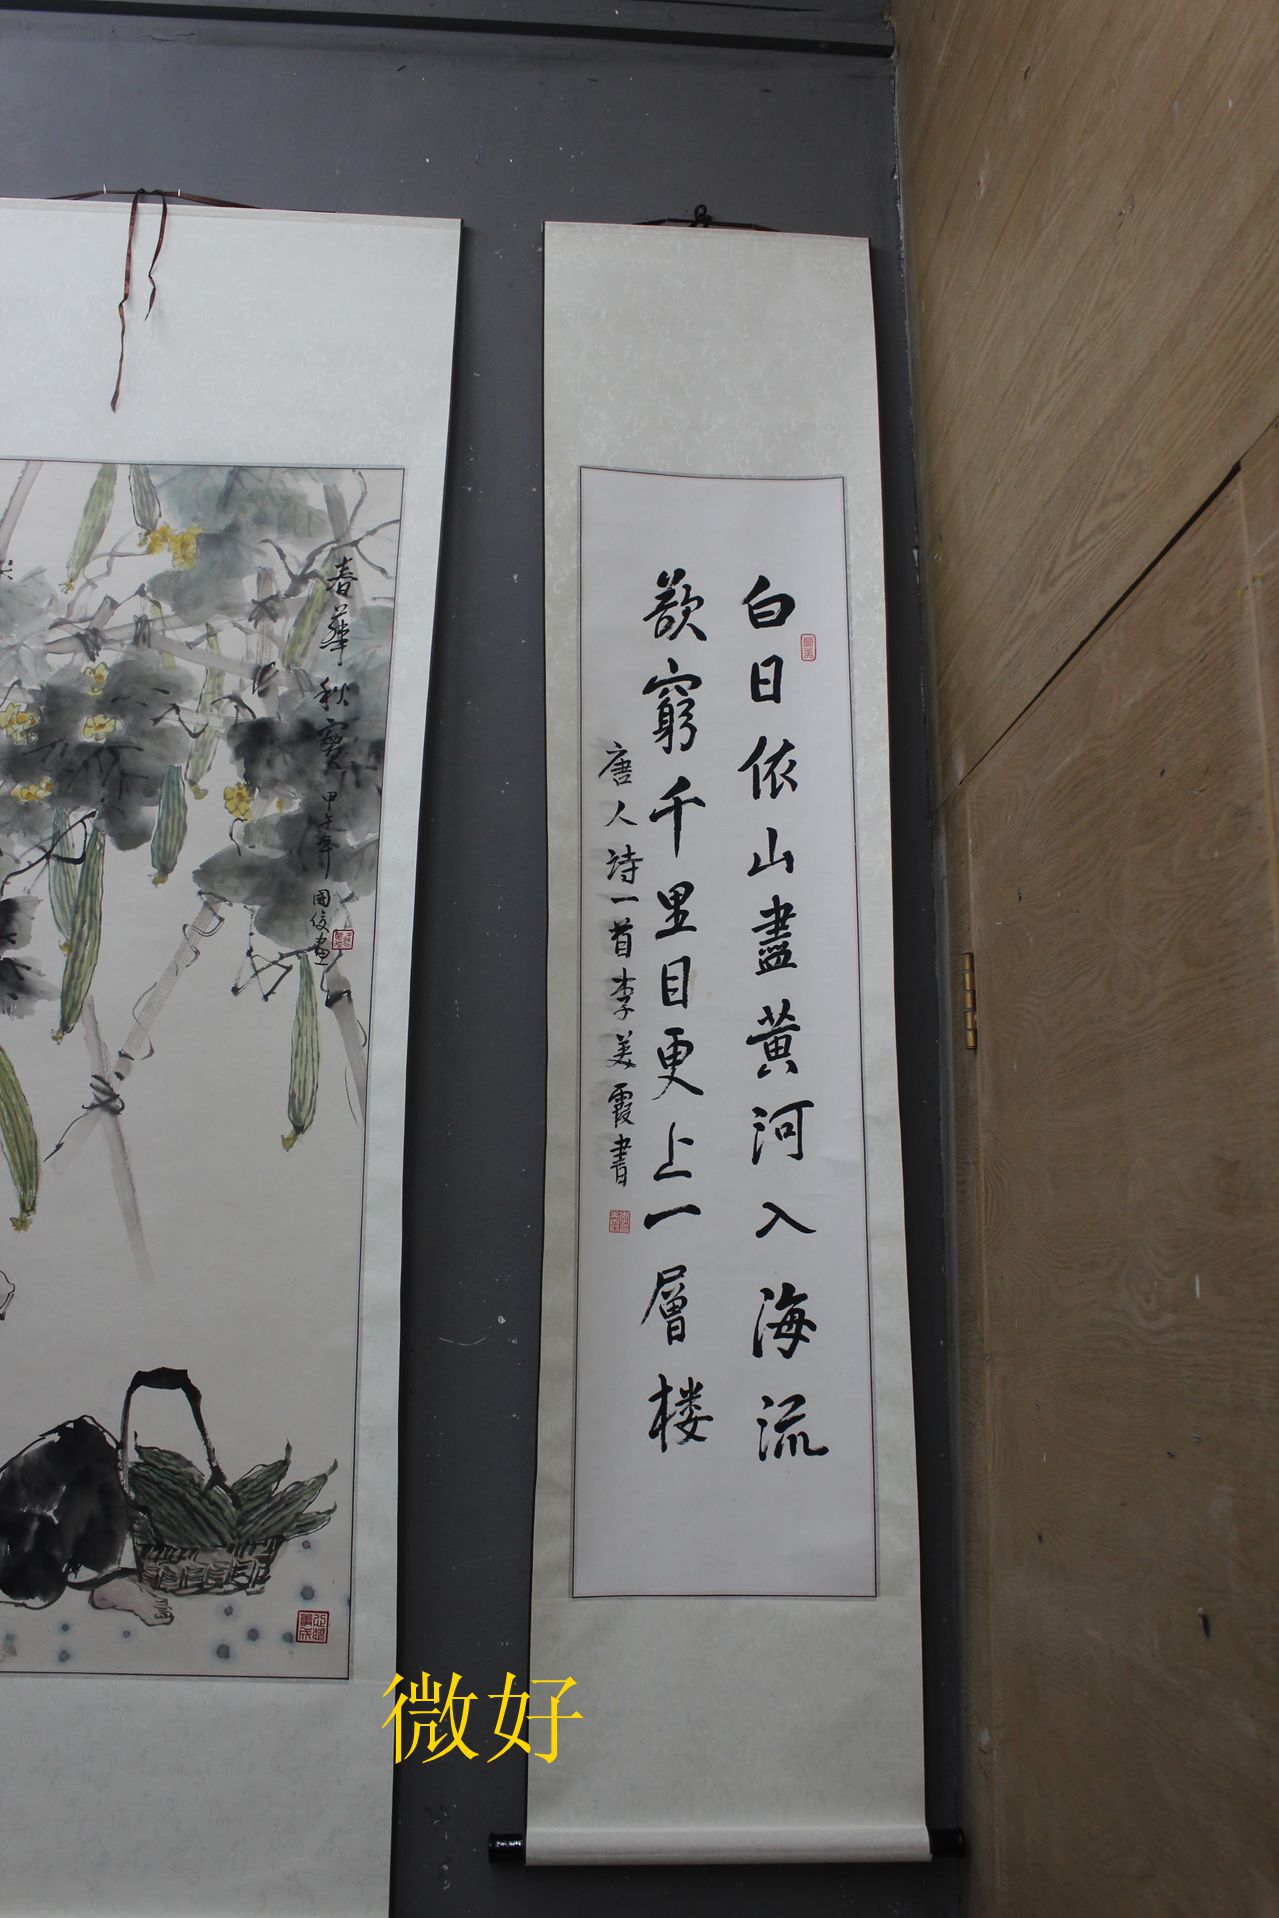 白日依山盡黃河入海流
欲窮千里目更上一層楼
唐人詩一首李美霞書
春華秋實
甲午年
国俊画
微好